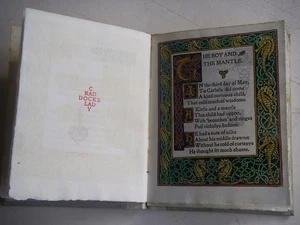 C
HAD
DOCKS
LAD
Y
THE BOY AND
THE MANTLE.
IN the third day of May,
To Carleile did come
A kind curteous child,
That cold much of wisdome.
A kirtle and a mantle
This child had uppon,
With "brouches" and ringes
Full richelye bedone.
He had a sute of silke
About his middle drawne;
Without he cold of curtesye
He thought itt much shame.